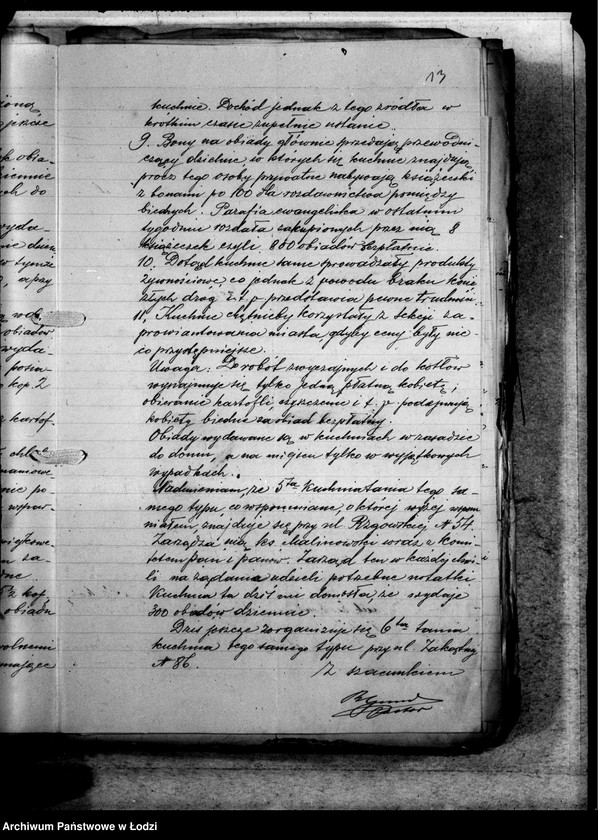 13
kuchnie. Dochód jednak z tego źródła w
krótkim czasie zupełnie ustanie.
9. Bony na obiady głównie sprzedają przewodni-
czący dzielnic, w których się kuchnie znajdują,
prócz tego osoby prywatne nabywają książeczki
z bonami po 100 dla rozdawnictwa pomiędzy
biednych. Parafia ewangielicka w ostatnim
tygodniu rozdała zakupionych przez nią 8
książeczek czyli 800 obiadów bezpłatnie.
10. Dotąd kuchnie same sprowadzały produkty
żywnościowe, co jednak z powodu braku koni
złych dróg i t. p. przedstawia pewne trudności
11. Kuchnie chętnieby korzystały z sekcji za-
prowiantowania miasta, gdyby ceny były nie-
co przystępniejsze.
Uwaga: Do robót zwyczajnych i do kotłów
wynajmuje się tylko jedną płatną kobietę;
obieranie kartofli, czyszczenie i t. p. podejmują
kobiety biedne za obiad bezpłatny.
Obiady wydawane są w kuchniach w zasadzie
do domu, a na miejscu tylko w wyjątkowych
wypadkach.
Nadmieniam, że 5ta Kuchnia tania tego sa-
mego typu, co wspomniane, o której wyżej wspom
niałem, znajduje się przy ul. Rzgowskiej № 54.
Zarządza nią ks. Malinowski wraz z komi-
tetem pań i panów. Zarząd ten w każdej chwi-
li na żądanie udzieli potrzebne notatki
Kuchnia ta dziś mi doniosła, że wydaje
300 obiadów dziennie.
Dziś jeszcze zorganizuje się 6ta tania
kuchnia tego samego typu przy ul. Zakątnej
№ 86.
Z szacunkiem
Pastor
jeszcze
obia-
dziennie
do
wyda-
w tymże
a przy
obiadów
wyda-
kop. 2
kartof.
nie po
za-
kop.
obiadu
Archiwum Państwowe w Łodzi